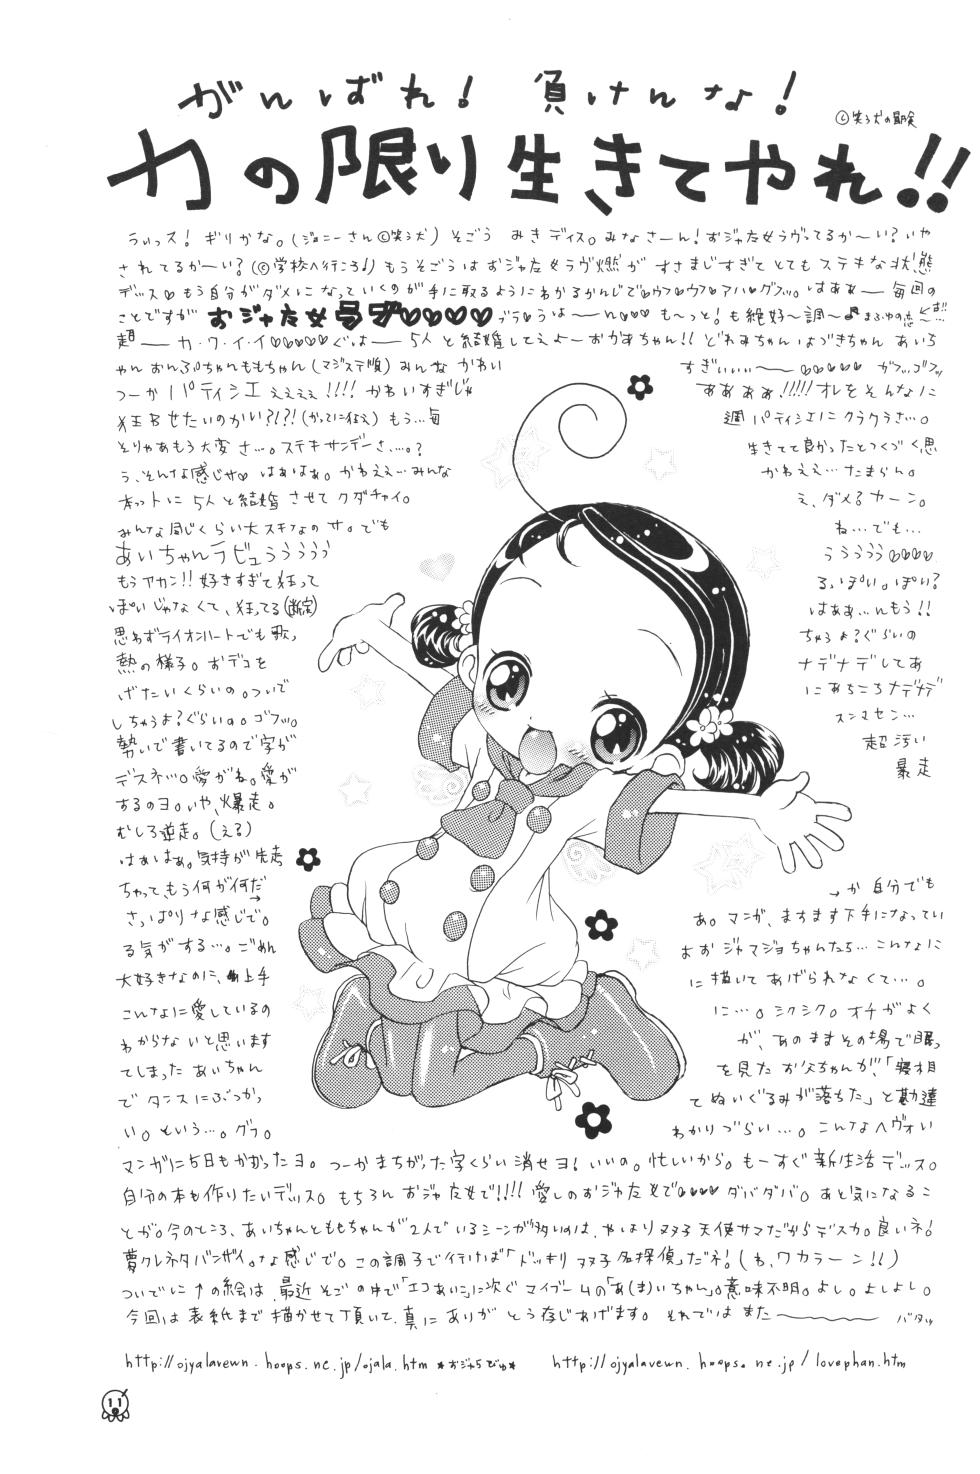 がんばれ！ 負けんな！
©笑う犬の冒険
力の限り生きてやれ!!
うぃっス！ ギリかな。(ジョニーさん©笑う犬) そごう みきディス。みなさーん！おジャ女ラヴってるかーい？いや
されてるかーい？(©学校へ行こう♪) もうそごうはおジャ女ラヴ燃がすさまじすぎてとてもステキな状態
デッス♡もう自分がダメになっていくのが手に取るようにわかるかんじで♡ウフ♡ウフ♡アハ♡グフッ。はぁぁー 毎回の
ことですが おジャ女ラヴ♡♡♡♡ ブラ♡うはーん♡♡♡もーっと！も絶好〜調〜♪まふゆの恋
超ー カ・ワ・イ・イ♡♡♡♡♡ぐはー 5人と結婚してえよーおかあちゃん!! どれみちゃんはづきちゃん あいち
ゃん おんぷちゃんももちゃん(マジステ順) みんなかわい すぎいぃぃー♡♡♡♡♡ ガフッ。ゴフッ
つーか パティシエ ええぇぇ!!!! かわいすぎじゃ ああああ!!!!!オレをそんなに
狂わせたいのかい?!?!(かってに狂え) もう…毎 週 パティシエにクラクラさ…。
そりゃあもう大変さ…。ステキサンデーさ…。? 生きてて良かったとつくづく思
う、そんな感じサ♡ はぁはぁ。かわええ…みんな かわええ…たまらん。
ホントに 5人と結婚させてクダチャイ。 え、ダメ? カーン。
みんな同じくらい大スキなのサ。でも ね…でも…
あいちゃんラビュううううう ううううう♡♡♡♡
もうアカン!! 好きすぎて狂って る、ぽい。ぽい?
ぽいじゃなくて、狂ってる(断定) はぁぁ…んもう!!
思わずライオンハートでも歌っ ちゃうよ?ぐらいの
熱の様子。おデコを ナデナデしてあ
げたいくらいの。ついで にあちこちナデナデ
しちゃうよ?ぐらいの。ゴフッ。 スンマセン…
勢いで書いてるので字が 超汚い
デスネッ。愛がね。愛が 暴走
するのヨ。いや、爆走。
むしろ逆走。(える)
はぁはぁ。気持が先走
ちゃって、もう何が何だ→ →か 自分でも
さっぱりな感じで。 あ。マンガ、ますます下手になってい
る気がする…。ごめん よお ジャマジョちゃんたち…こんなに
大好きなのに、上手 に描いてあげられなくて…。
こんなに愛しているの に…。シクシク。オチがよく
わからないと思います が、あのままその場で眠っ
てしまった あいちゃん を見た お父ちゃんが、「寝相
でタンスにぶつかっ てぬいぐるみが落ちた」と勘違
い。という…。グフ。 わかりづらい…。こんなヘヴォい
マンガに5日もかかったヨ。つーかまちがった字くらい消せヨ！いいの。忙しいから。もーすぐ新生活デッス。
自分の本も作りたいデッス。もちろん おジャ女で!!!! 愛しのおジャ女で♡♡♡♡ダバダバ。あと気になるこ
とが。今のところ、あいちゃんとももちゃんが2人でいるシーンが多いのは、やはり双子天使サマだからデスカ。良いネ！
夢クレネタバンザイ。な感じで。この調子で行けば「ドッキリ双子名探偵」だネ！(わ、ワカラーン!!)
ついでに↑の絵は、最近そごの中で「エコあいこ」に次ぐマイブームの「あ(ま)いちゃん」。意味不明。よし。よしよし。
今回は表紙まで描かせて頂いて、真にありがとう存じあげます。それではまた〜 バタッ
http://ojyalavewn.hoops.ne.jp/ojala.htm *おジャらびゅ* http://ojyalavewn.hoops.ne.jp/lovephan.htm
11